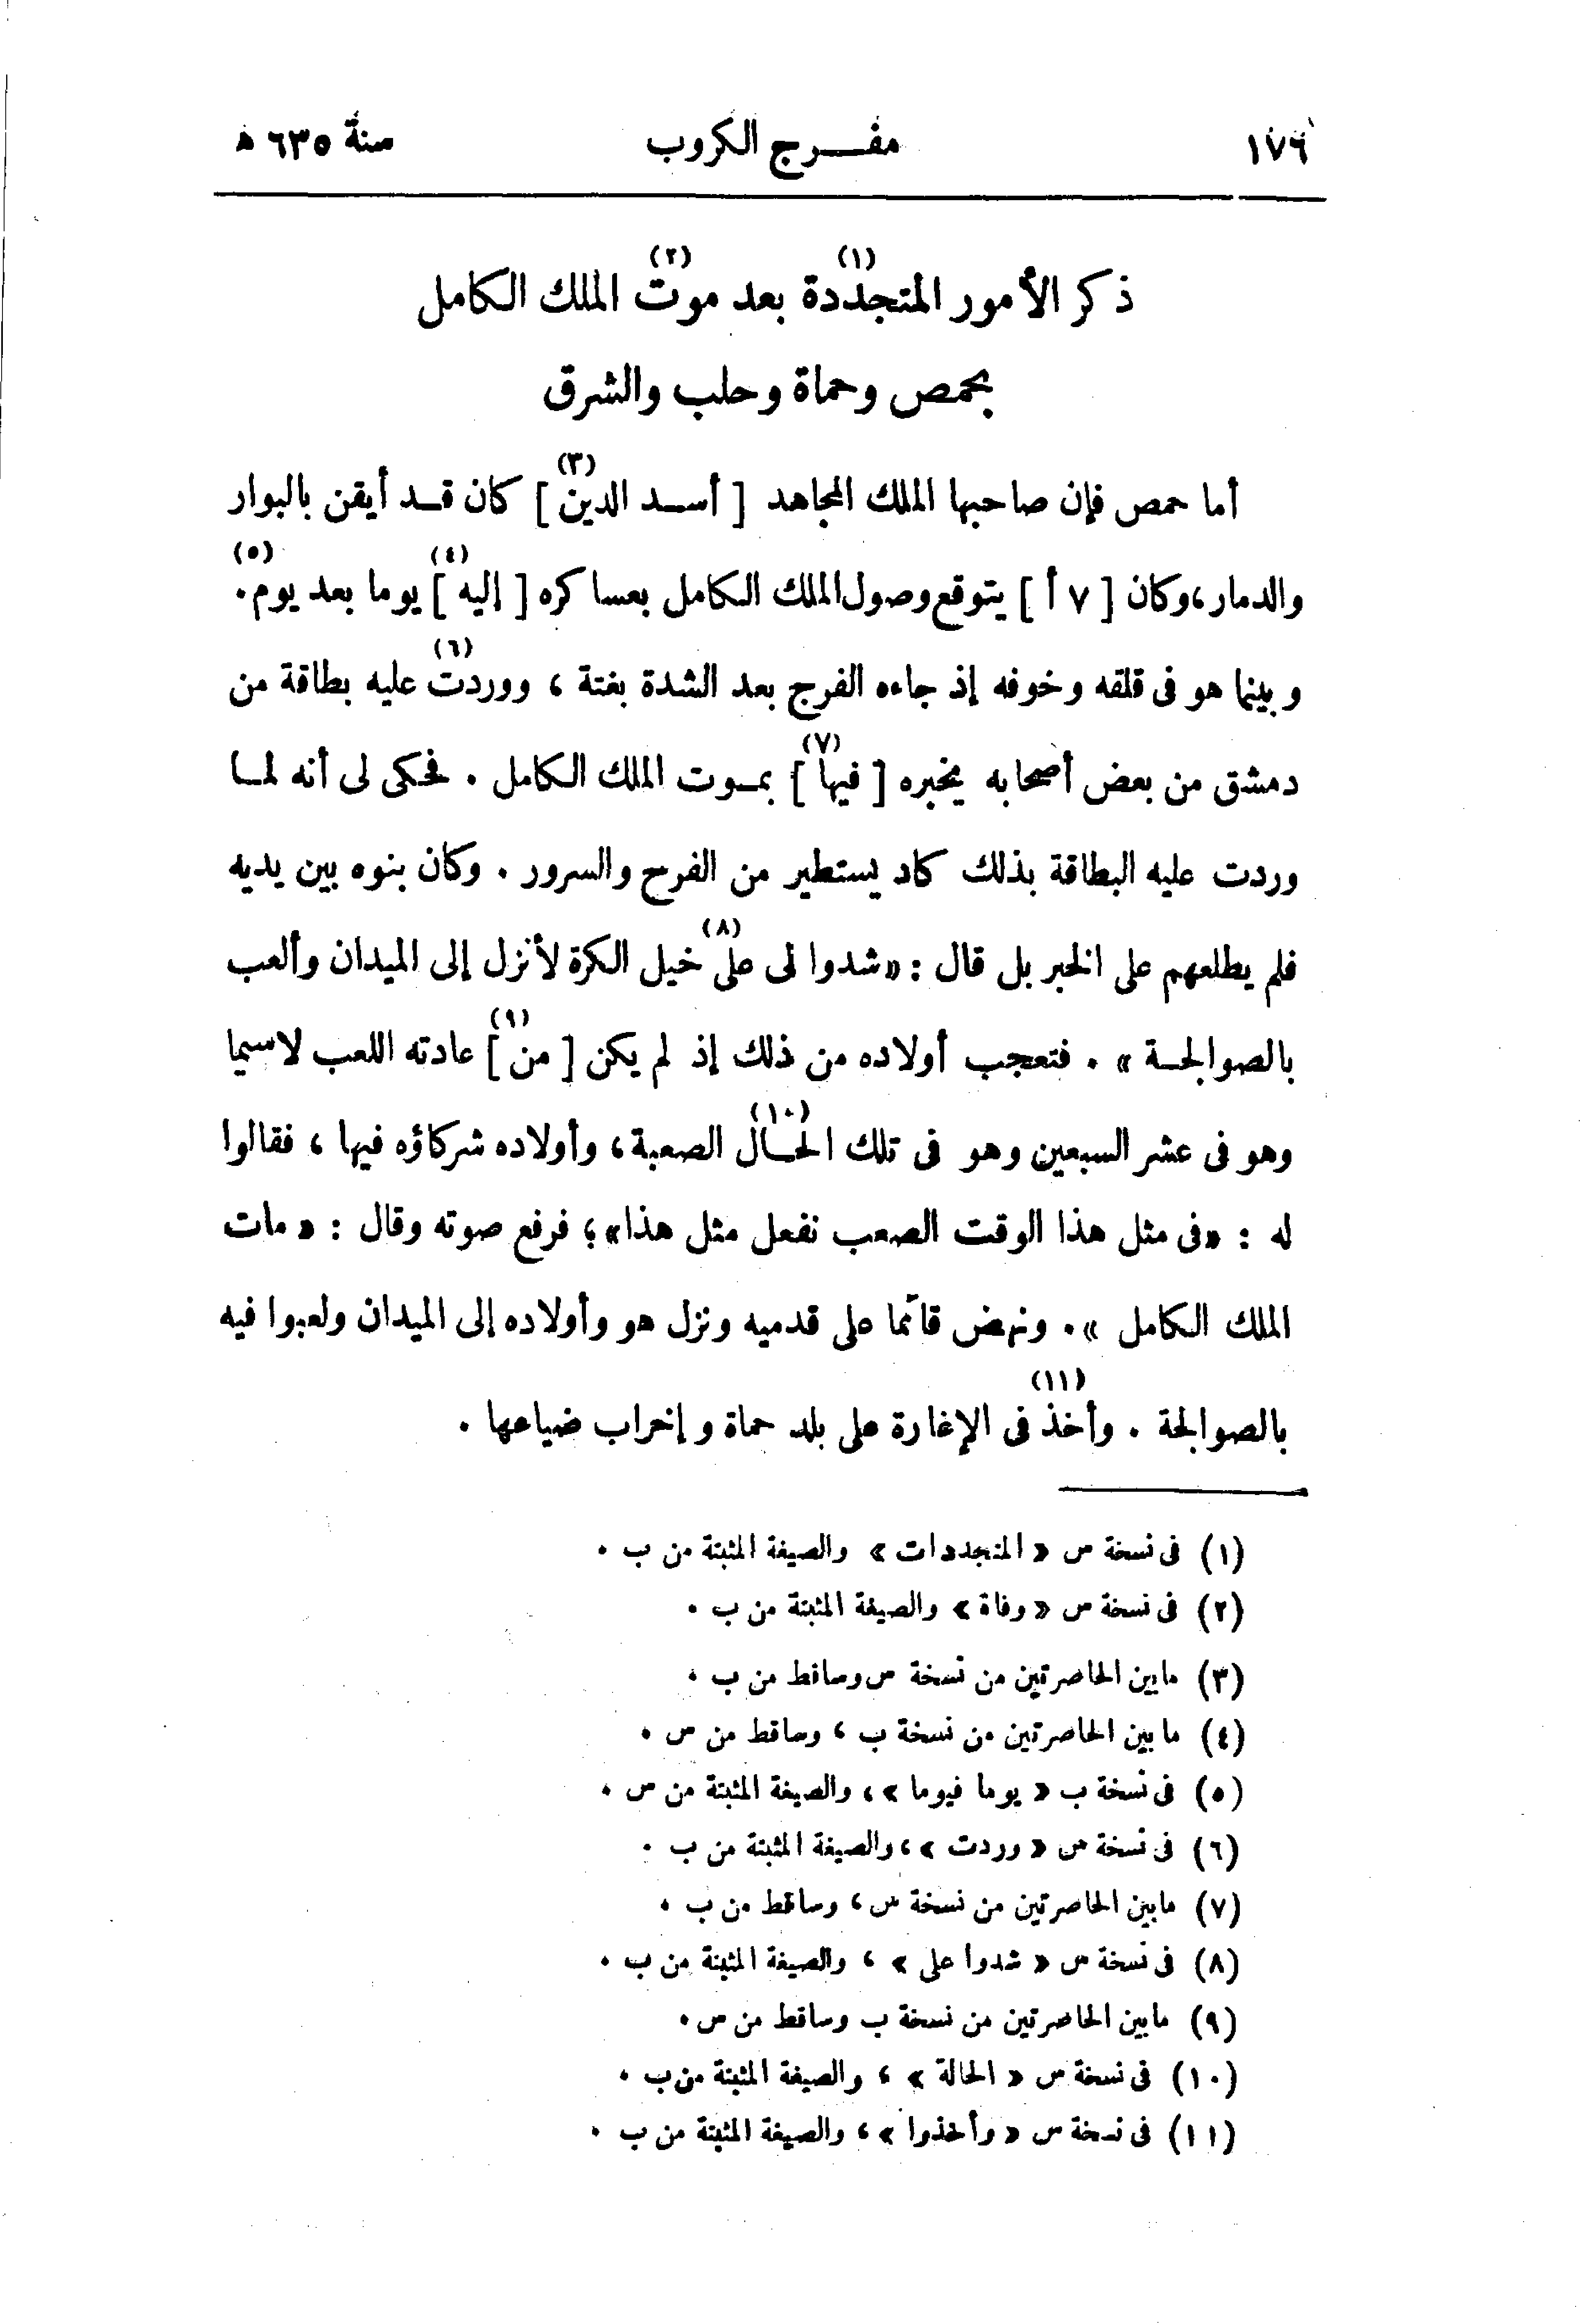 ١٧٦ مفرج الكروب سنة ٦٣٥ ه
ذكر الأمور المتجددة(١) بعد موت(٢) الملك الكامل
بحمص وحماة وحلب والشرق
أما حمص فإن صاحبها الملك المجاهد [ أسد الدين(٣) ] كان قد أيقن بالبوار
والدمار، وكان [ ٧ أ ] يتوقع وصول الملك الكامل بعساكره [ إليه(٤) ] يوما بعد يوم(٥).
وبينما هو فى قلقه وخوفه إذ جاءه الفرج بعد الشدة بغتة ، ووردت(٦) عليه بطاقة من
دمشق من بعض أصحابه يخبره [ فيها(٧) ] بموت الملك الكامل . فحكى لى أنه لما
وردت عليه البطاقة بذلك كاد يستطير من الفرح والسرور . وكان بنوه بين يديه
فلم يطلعهم على الخبر بل قال : «شدوا لى على(٨) خيل الكرة لأنزل إلى الميدان وألعب
بالصوالجة » . فتعجب أولاده من ذلك إذ لم يكن [ من(٩) ] عادته اللعب لاسيما
وهو فى عشر السبعين وهو فى تلك الحال(١٠) الصعبة ، وأولاده شركاؤه فيها ، فقالوا
له : «فى مثل هذا الوقت الصعب نفعل مثل هذا»؛ فرفع صوته وقال : « مات
الملك الكامل ». ونهض قائما على قدميه ونزل هو وأولاده إلى الميدان ولعبوا فيه
بالصوالجة . وأخذ(١١) فى الإغارة على بلد حماة وإخراب ضياعها .
(١) فى نسخة س « المتجددات » والصيغة المثبتة من ب .
(٢) فى نسخة س « وفاة » والصيغة المثبتة من ب .
(٣) مابين الحاصرتين من نسخة س وساقط من ب .
(٤) ما بين الحاصرتين من نسخة ب ، وساقط من س .
(٥) فى نسخة ب « يوما فيوما » ، والصيغة المثبتة من س .
(٦) فى نسخة س « وردت » ، والصيغة المثبتة من ب .
(٧) مابين الحاصرتين من نسخة س ، وساقط من ب .
(٨) فى نسخة س « شدوا على » ، والصيغة المثبتة من ب .
(٩) مابين الحاصرتين من نسخة ب وساقط من س .
(١٠) فى نسخة س « الحالة » ، والصيغة المثبتة من ب .
(١١) فى نسخة س « وأخذوا » ، والصيغة المثبتة من ب .